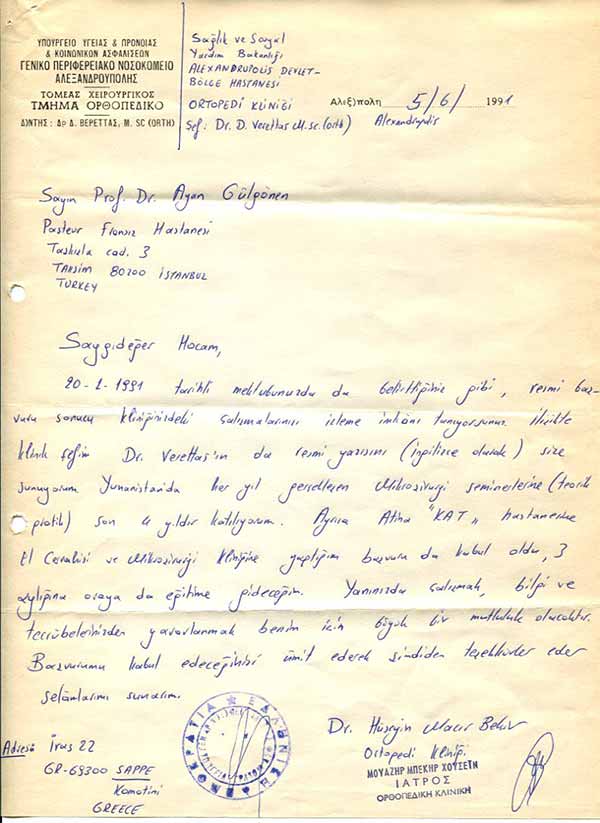 ΥΠΟΥΡΓΕΙΟ ΥΓΕΙΑΣ & ΠΡΟΝΟΙΑΣ
& ΚΟΙΝΩΝΙΚΩΝ ΑΣΦΑΛΙΣΕΩΝ
ΓΕΝΙΚΟ ΠΕΡΙΦΕΡΕΙΑΚΟ ΝΟΣΟΚΟΜΕΙΟ
ΑΛΕΞΑΝΔΡΟΥΠΟΛΗΣ
ΤΟΜΕΑΣ ΧΕΙΡΟΥΡΓΙΚΟΣ
ΤΜΗΜΑ ΟΡΘΟΠΕΔΙΚΟ
Δ)ΝΤΗΣ: ΔΡ Δ. ΒΕΡΕΤΤΑΣ, M. SC (ORTH)
Sağlık ve Sosyal
Yardım Bakanlığı
ALEXANDRUPOLIS DEVLET-
BÖLGE HASTANESİ
ORTOPEDİ KLİNİĞİ
Şef: Dr. D. Verettas M.sc. (orth)
Αλεξ)πολη 5/6/1991
Alexandrupolis
Sayın Prof. Dr. Ayan Gülgönen
Pasteur Fransız Hastanesi
Taşkışla cad. 3
TAKSİM 80200 İSTANBUL
TURKEY
Saygıdeğer Hocam,
20-2-1991 tarihli mektubunuzda da belirttiğiniz gibi, resmi baş-
vuru sonucu kliniğinizdeki çalışmalarınızı izleme imkânı tanıyorsunuz. İlişikte
klinik şefim Dr. Verettas'ın da resmi yazısını (ingilizce olarak) size
sunuyorum. Yunanistan'da her yıl Mikroşirurji seminerlerine (teorik
pratik) son 4 yıldır katılıyorum. Ayrıca Atina "KAT" hastanesine
El Cerrahisi ve Mikroşirurji kliniğine yaptığım başvuru da kabul oldu, 3
aylığına oraya da eğitime gideceğim. Yanınızda çalışmak, bilgi ve
tecrübelerinizden yararlanmak benim için büyük bir mutluluk olacaktır.
Başvurumu kabul edeceğinizi ümit ederek şimdiden teşekkürler eder
selâmlarımı sunarım.
Dr. Hüseyin Macır Bekir
Ortopedi Kliniği
ΜΟΥΑΖΗΡ ΜΠΕΚΗΡ ΧΟΥΣΕΪΝ
ΙΑΤΡΟΣ
ΟΡΘΟΠΕΔΙΚΗ ΚΛΙΝΙΚΗ
Adresi: İras 22
GR-69300 SAPPE
Komotini
GREECE
ΕΛΛΗΝΙΚΗ ΔΗΜΟΚΡΑΤΙΑ